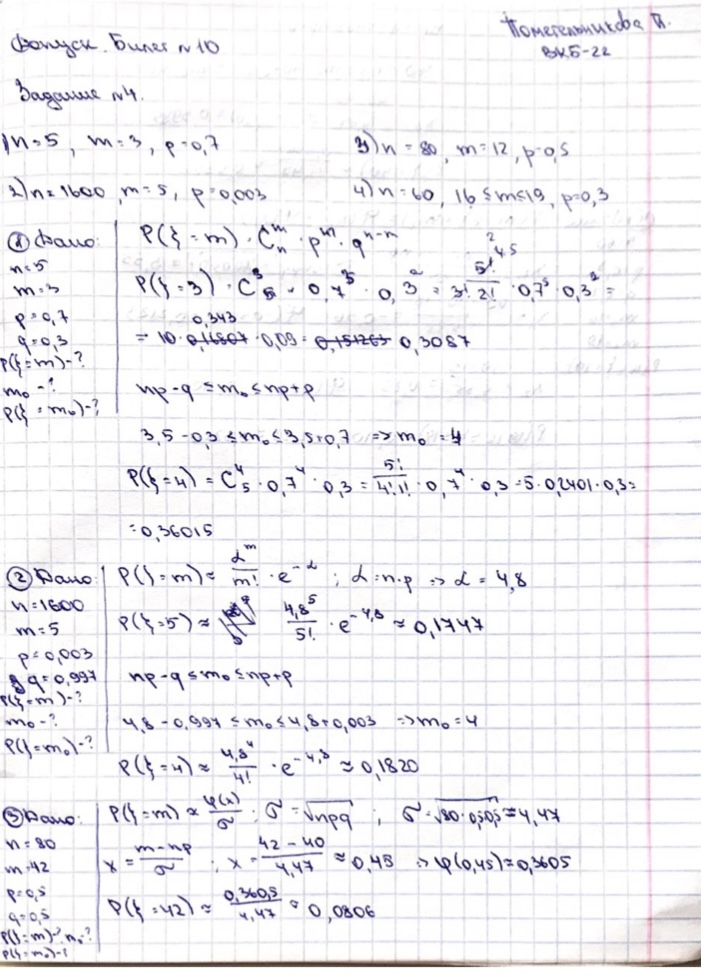 Пометельникова П.
ВКБ-22
Допуск. Билет №10
Задание №4.
1) n=5, m=3, p=0,7
3) n=80, m=12, p=0,5
2) n=1600, m=5, p=0,003
4) n=60, 16≤m≤19, p=0,3
① Дано:
n=5
m=3
p=0,7
q=0,3
P(ξ=m)-?
m₀-?
P(ξ=m₀)-?
P(ξ=m) = Cₙᵐ · pᵐ · qⁿ⁻ᵐ
P(ξ=3) = C₅³ · 0,7³ · 0,3² = 5!/(3! 2!) · 0,7³ · 0,3² =
= 10 · 0,343 · 0,09 = 0,3087
np-q ≤ m₀ ≤ np+p
3,5-0,3 ≤ m₀ ≤ 3,5+0,7 => m₀=4
P(ξ=4) = C₅⁴ · 0,7⁴ · 0,3 = 5!/(4! 1!) · 0,7⁴ · 0,3 = 5 · 0,2401 · 0,3 =
= 0,36015
② Дано:
n=1600
m=5
p=0,003
q=0,997
P(ξ=m)-?
m₀-?
P(ξ=m₀)-?
P(ξ=m) ≈ αᵐ/m! · e^-α ; α=n·p => α=4,8
P(ξ=5) ≈ 4,8⁵/5! · e^-4,8 ≈ 0,1747
np-q ≤ m₀ ≤ np+p
4,8-0,997 ≤ m₀ ≤ 4,8+0,003 => m₀=4
P(ξ=4) ≈ 4,8⁴/4! · e^-4,8 ≈ 0,1820
③ Дано:
n=80
m=42
p=0,5
q=0,5
P(ξ=m)-? m₀-?
P(ξ=m₀)-?
P(ξ=m) ≈ φ(x)/σ ; σ=√npq ; σ=√80·0,5·0,5 ≈ 4,47
x = (m-np)/σ ; x = (42-40)/4,47 ≈ 0,45 => φ(0,45) ≈ 0,3605
P(ξ=42) ≈ 0,3605/4,47 ≈ 0,0806